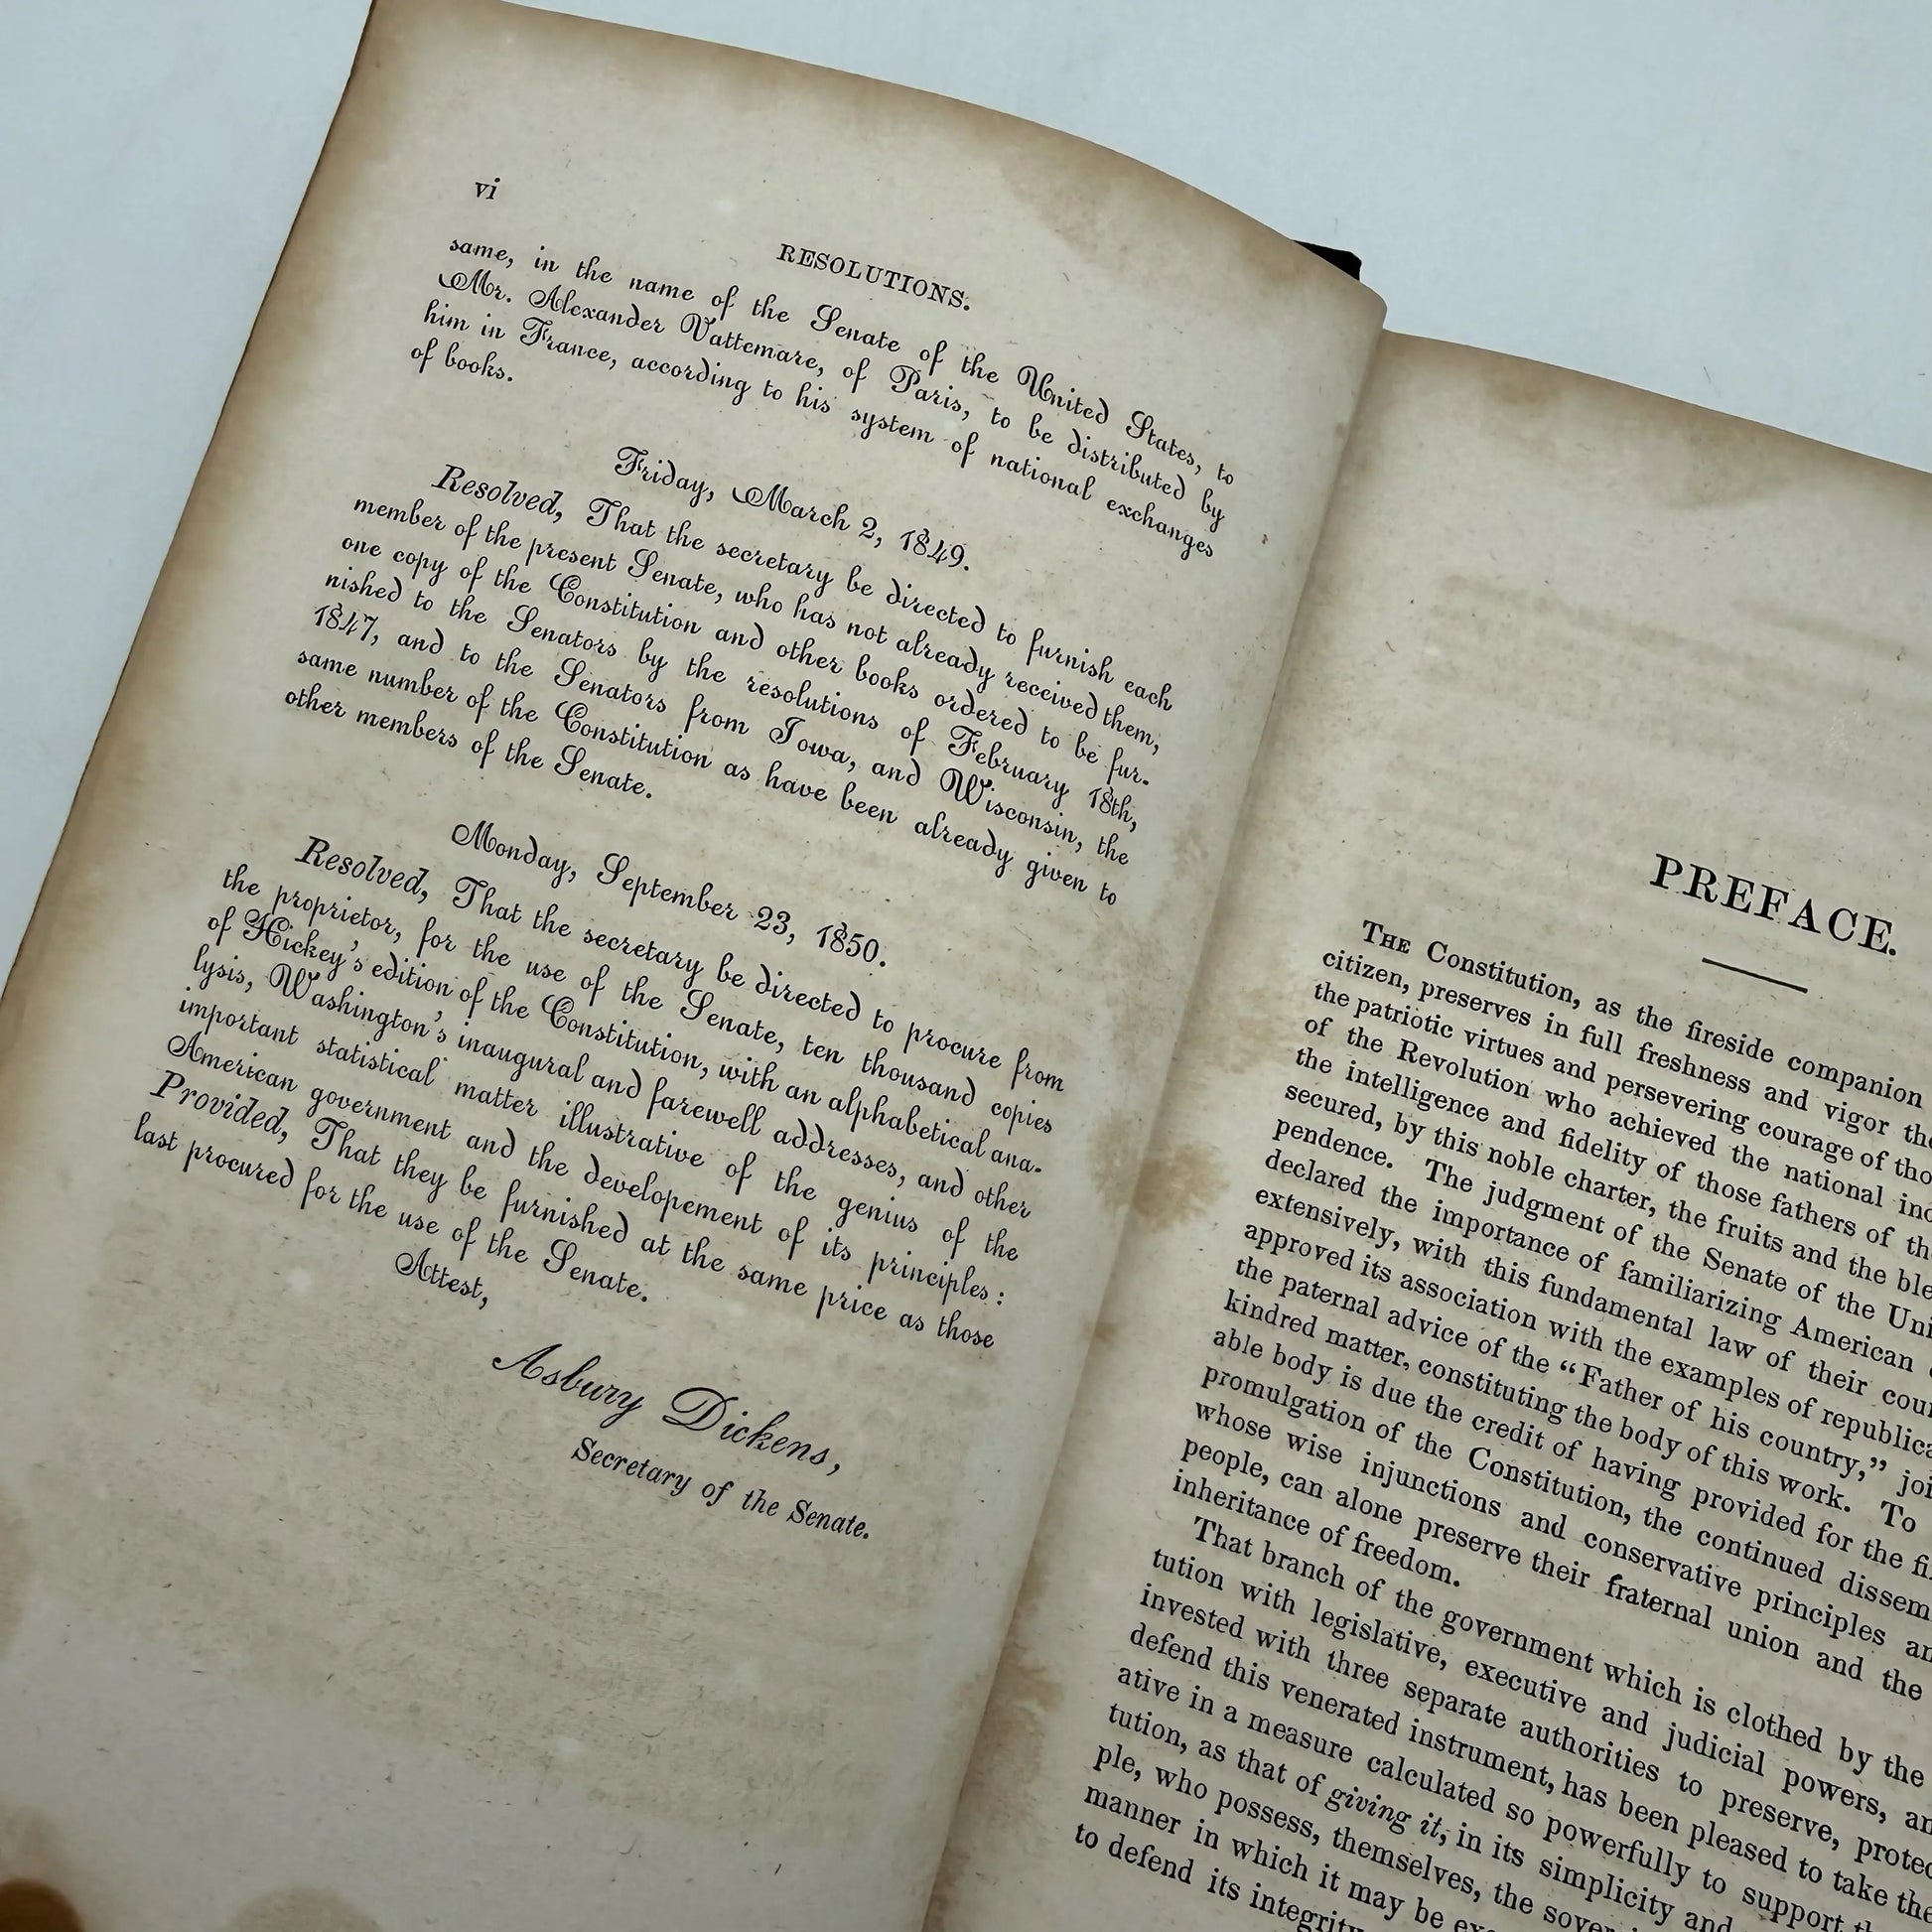 vi
RESOLUTIONS.
same, in the name of the Senate of the United States, to
Mr. Alexander Vattemare, of Paris, to be distributed by
him in France, according to his system of national exchanges
of books.
Friday, March 2, 1849.
Resolved, That the secretary be directed to furnish each
member of the present Senate, who has not already received them,
one copy of the Constitution and other books ordered to be fur-
nished to the Senators by the resolutions of February 18th,
1847, and to the Senators from Iowa, and Wisconsin, the
same number of the Constitution as have been already given to
other members of the Senate.
Monday, September 23, 1850.
Resolved, That the secretary be directed to procure from
the proprietor, for the use of the Senate, ten thousand copies
of Hickey's edition of the Constitution, with an alphabetical ana-
lysis, Washington's inaugural and farewell addresses, and other
important statistical matter illustrative of the genius of the
American government and the developement of its principles:
Provided, That they be furnished at the same price as those
last procured for the use of the Senate.
Attest,
Asbury Dickens,
Secretary of the Senate.
PREFACE.
THE Constitution, as the fireside companion
citizen, preserves in full freshness and vigor the
the patriotic virtues and persevering courage of tho
of the Revolution who achieved the national ind
the intelligence and fidelity of those fathers of the
secured, by this noble charter, the fruits and the ble
pendence. The judgment of the Senate of the Uni
declared the importance of familiarizing American
extensively, with this fundamental law of their coun
approved its association with the examples of republica
the paternal advice of the "Father of his country," joi
kindred matter, constituting the body of this work. To
able body is due the credit of having provided for the fi
promulgation of the Constitution, the continued dissem
whose wise injunctions and conservative principles an
people, can alone preserve their fraternal union and the
inheritance of freedom.
That branch of the government which is clothed by the
tution with legislative, executive and judicial powers, an
invested with three separate authorities to preserve, protec
defend this venerated instrument, has been pleased to take the
ative in a measure calculated so powerfully to support th
tution, as that of giving it, in its simplicity and
ple, who possess, themselves, the sover
manner in which it may be exe
to defend its integrity